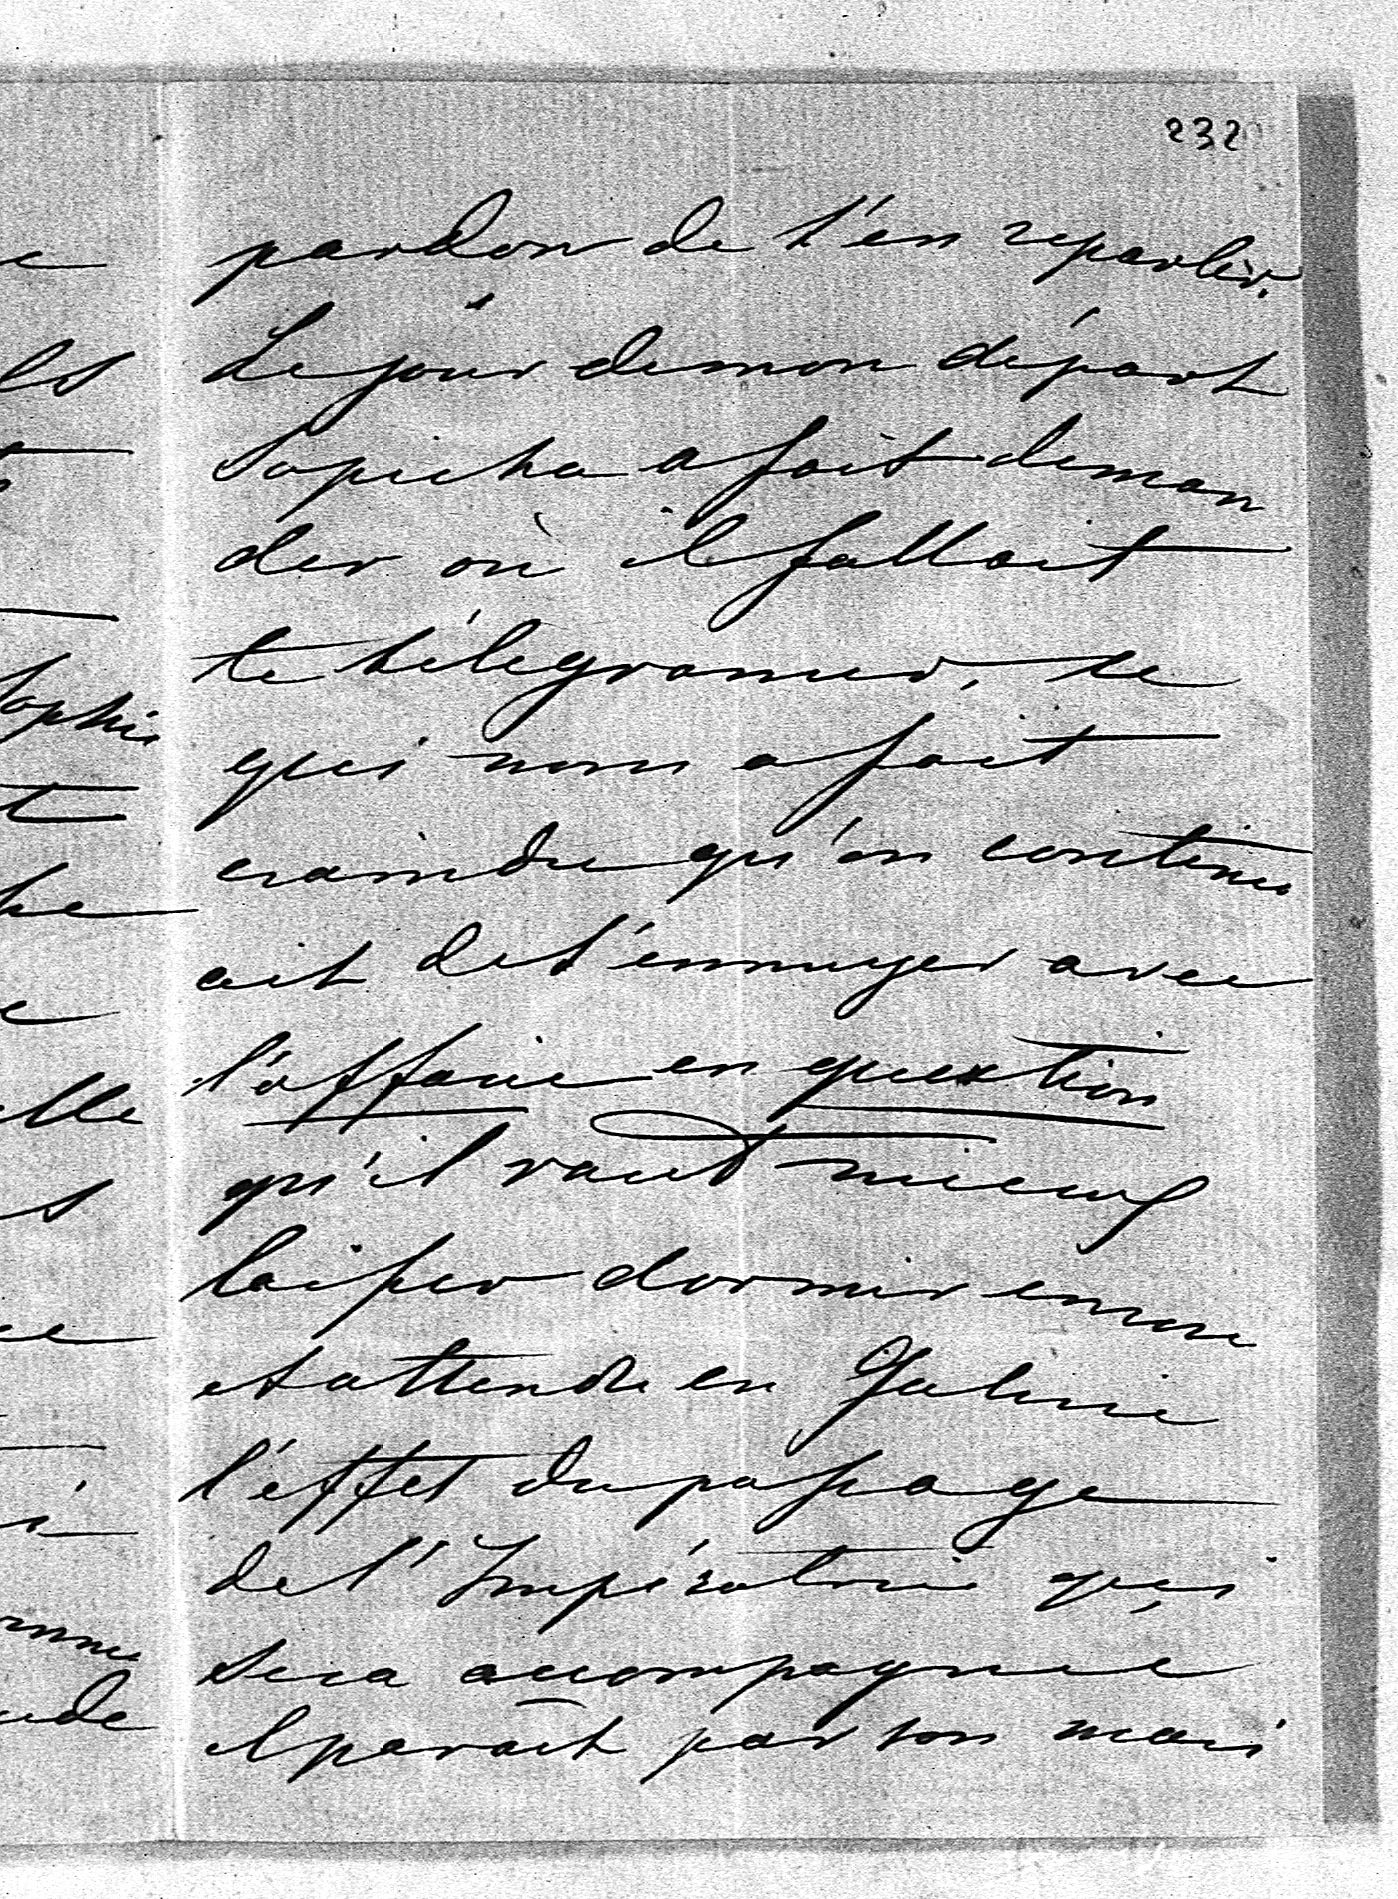 232
pardon de t'en reparler.
Le jour de mon départ
Sapieha a fait deman
der où il fallait
te télégramer, ce
qui nous a fait
craindre qu'on continu
ait de t'ennuyer avec
l'affaire en question
qu'il vaut mieux
laisser dormir encore
et attendre en Galicie
l'éffet du passage
de l'Impératrice qui
sera accompagnée
il paraît par son mari